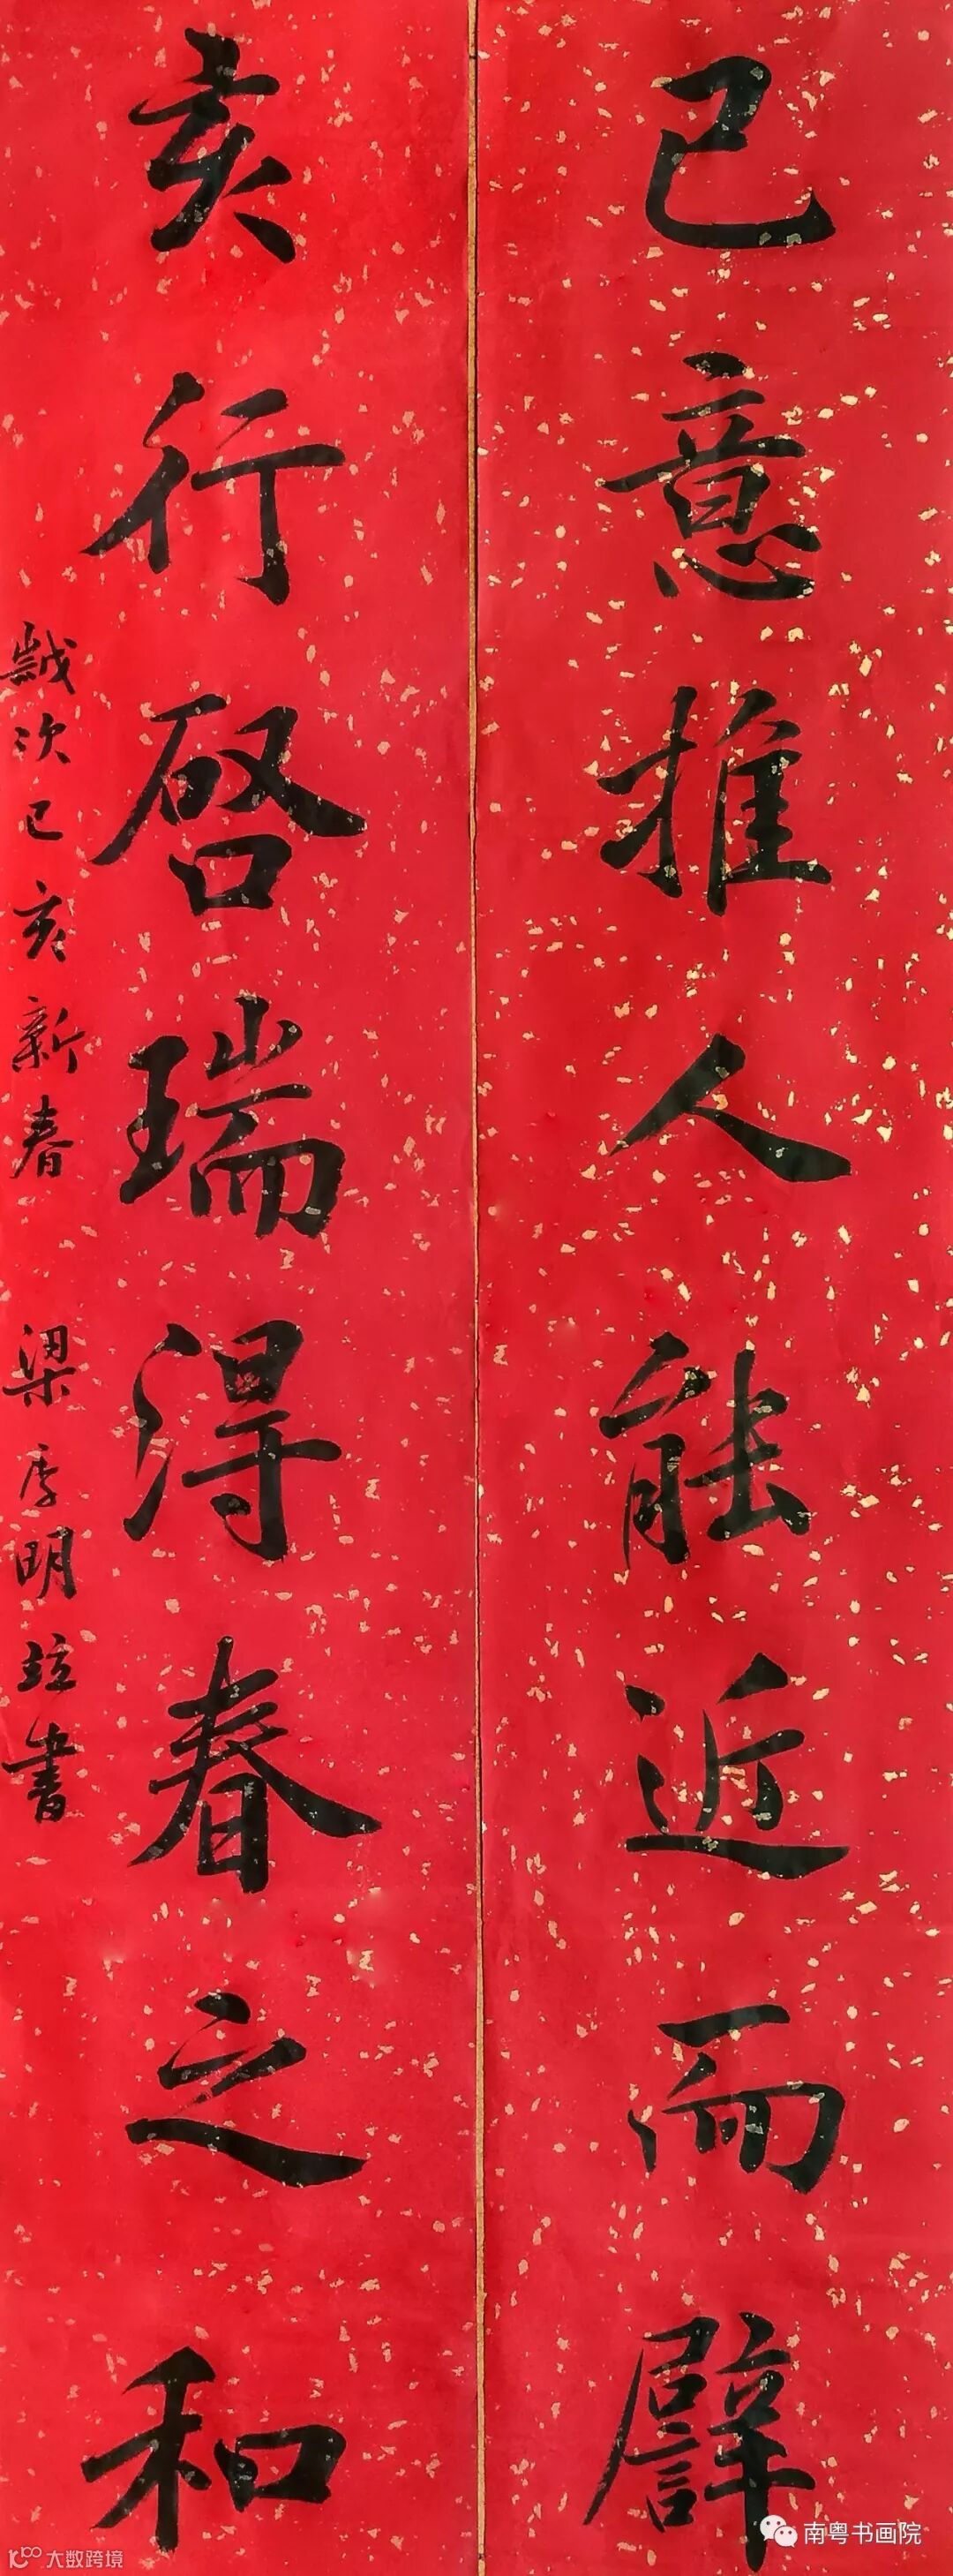 己意推人能近而譬
亥行啓瑞得春之和
歲次己亥新春 梁 明 書
南粤书画院
大数跨境